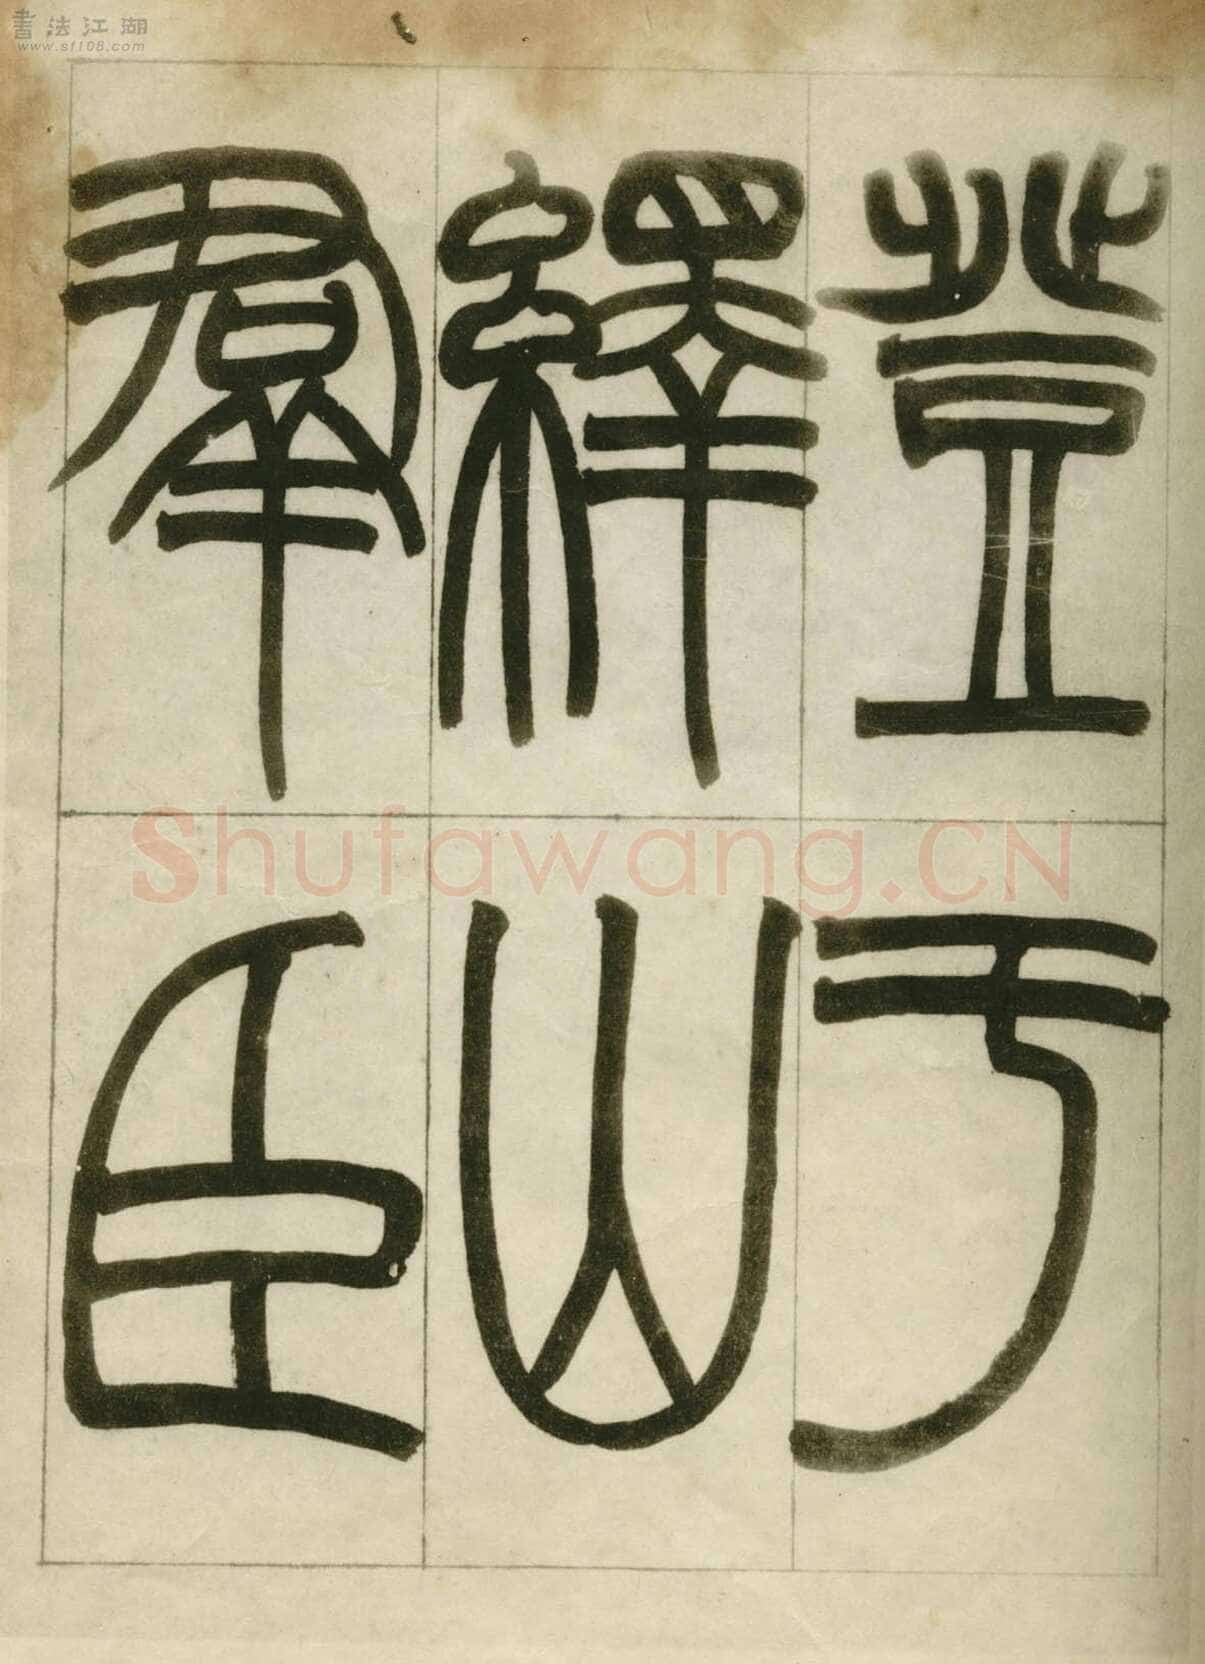 書法江湖
www.sf108.com
登于
繹山
羣臣
Shufawang.CN